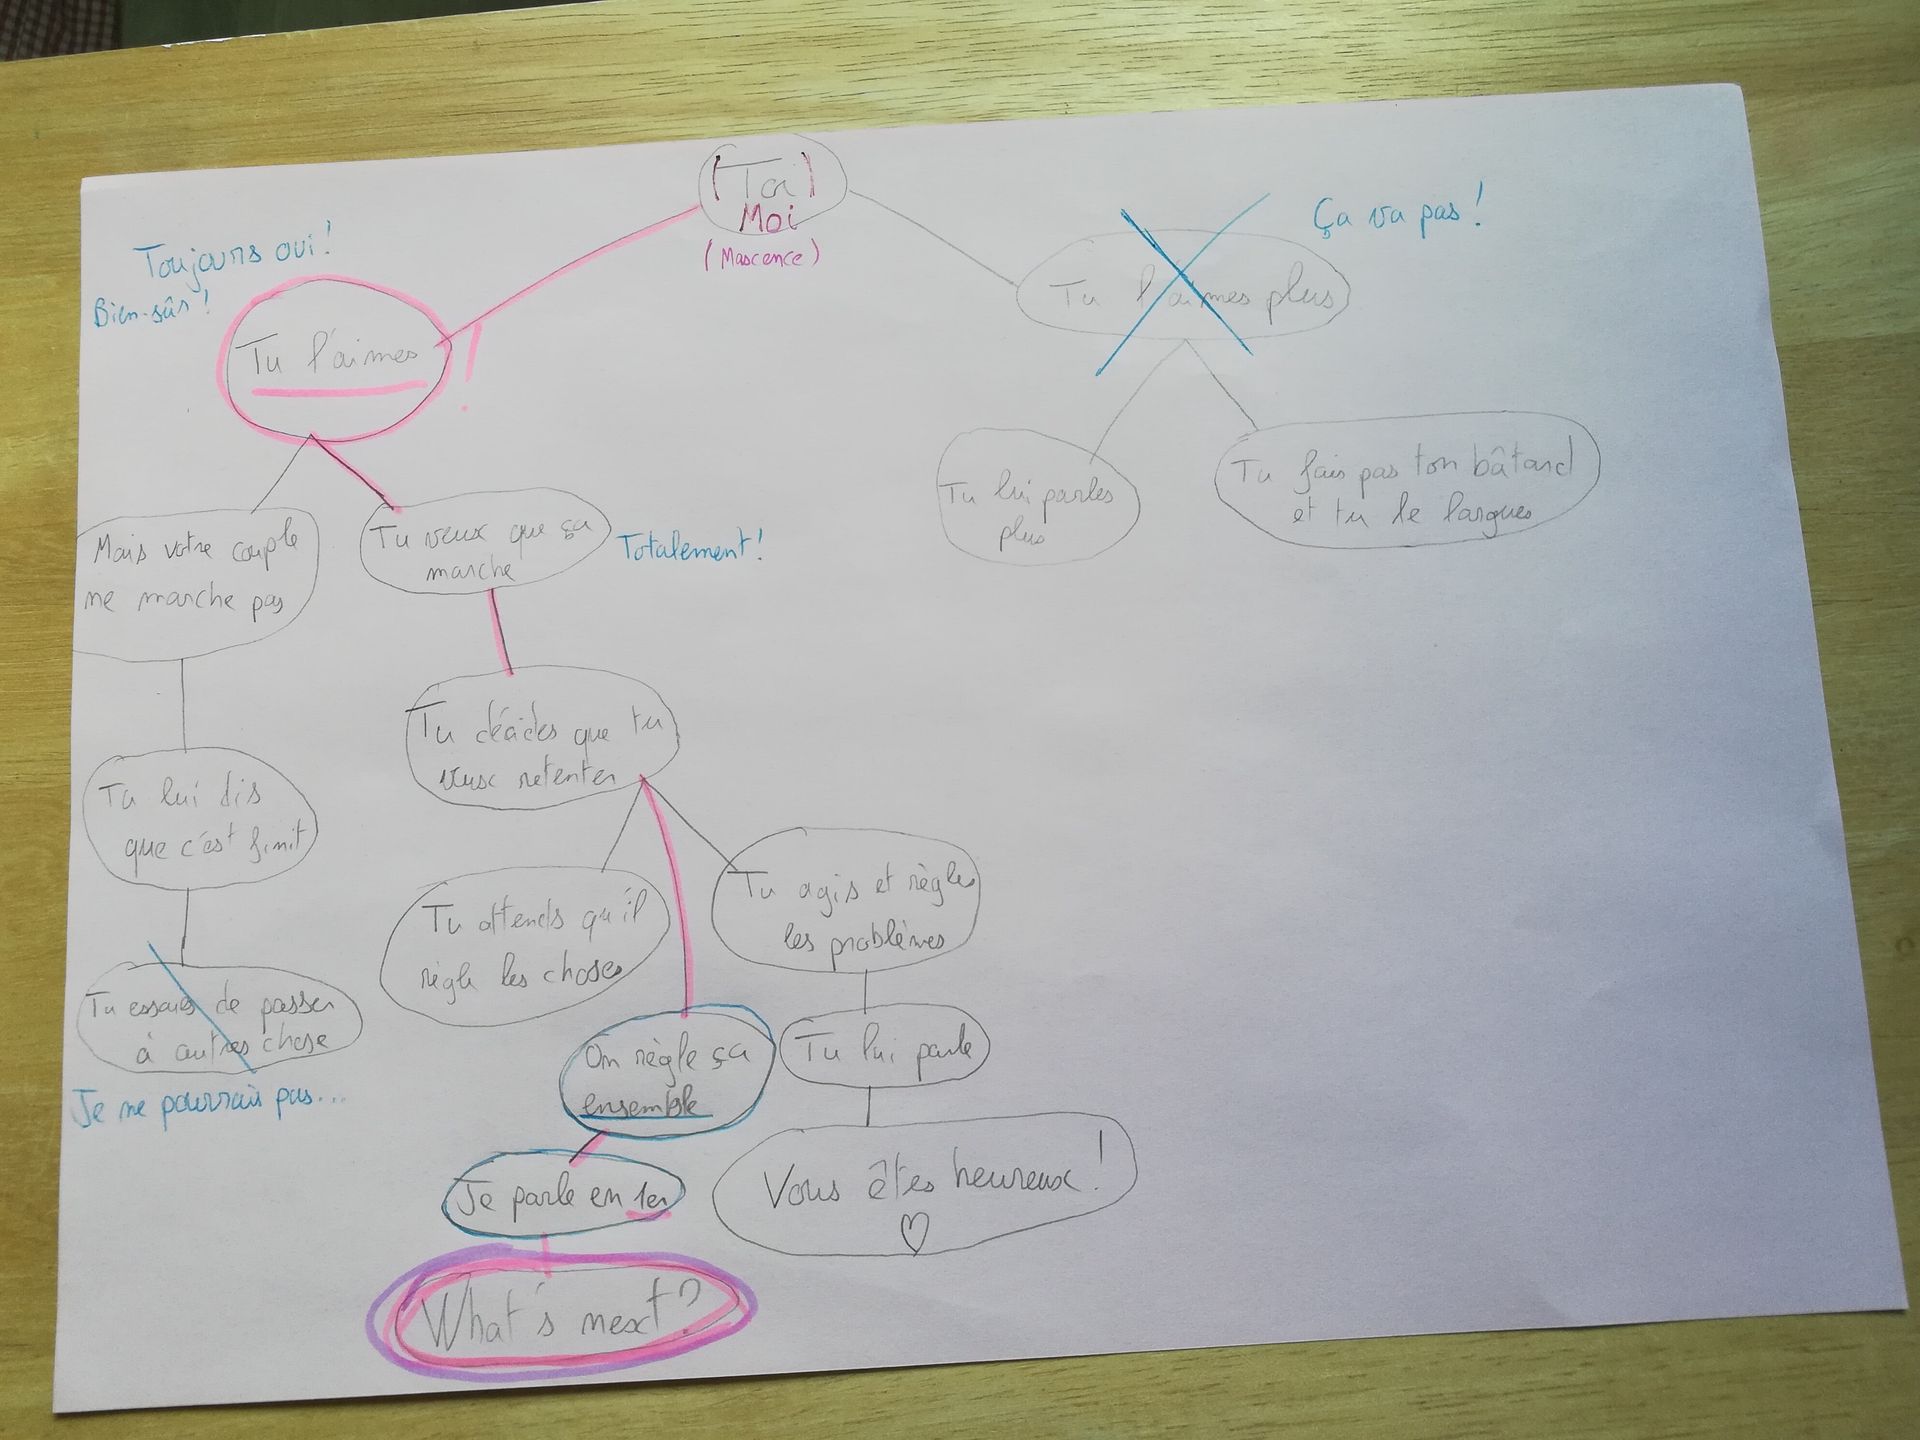 (Toi)
Moi
(Mascence)
Toujours oui!
Bien-sûr!
Tu l'aimes
!
Ça va pas!
Tu l'aimes plus
Tu lui parles
plus
Tu fais pas ton bâtard
et tu le largues
Mais votre couple
ne marche pas
Tu veux que ça
marche
Totalement!
Tu lui dis
que c'est finit
Tu décides que tu
veux retenter
Tu essaies de passer
à autres chose
Je ne pourrais pas...
Tu attends qu'il
règle les choses
Tu agis et règles
les problèmes
On règle ça
ensemble
Tu lui parle
Je parle en 1er
Vous êtes heureux!
What's next?